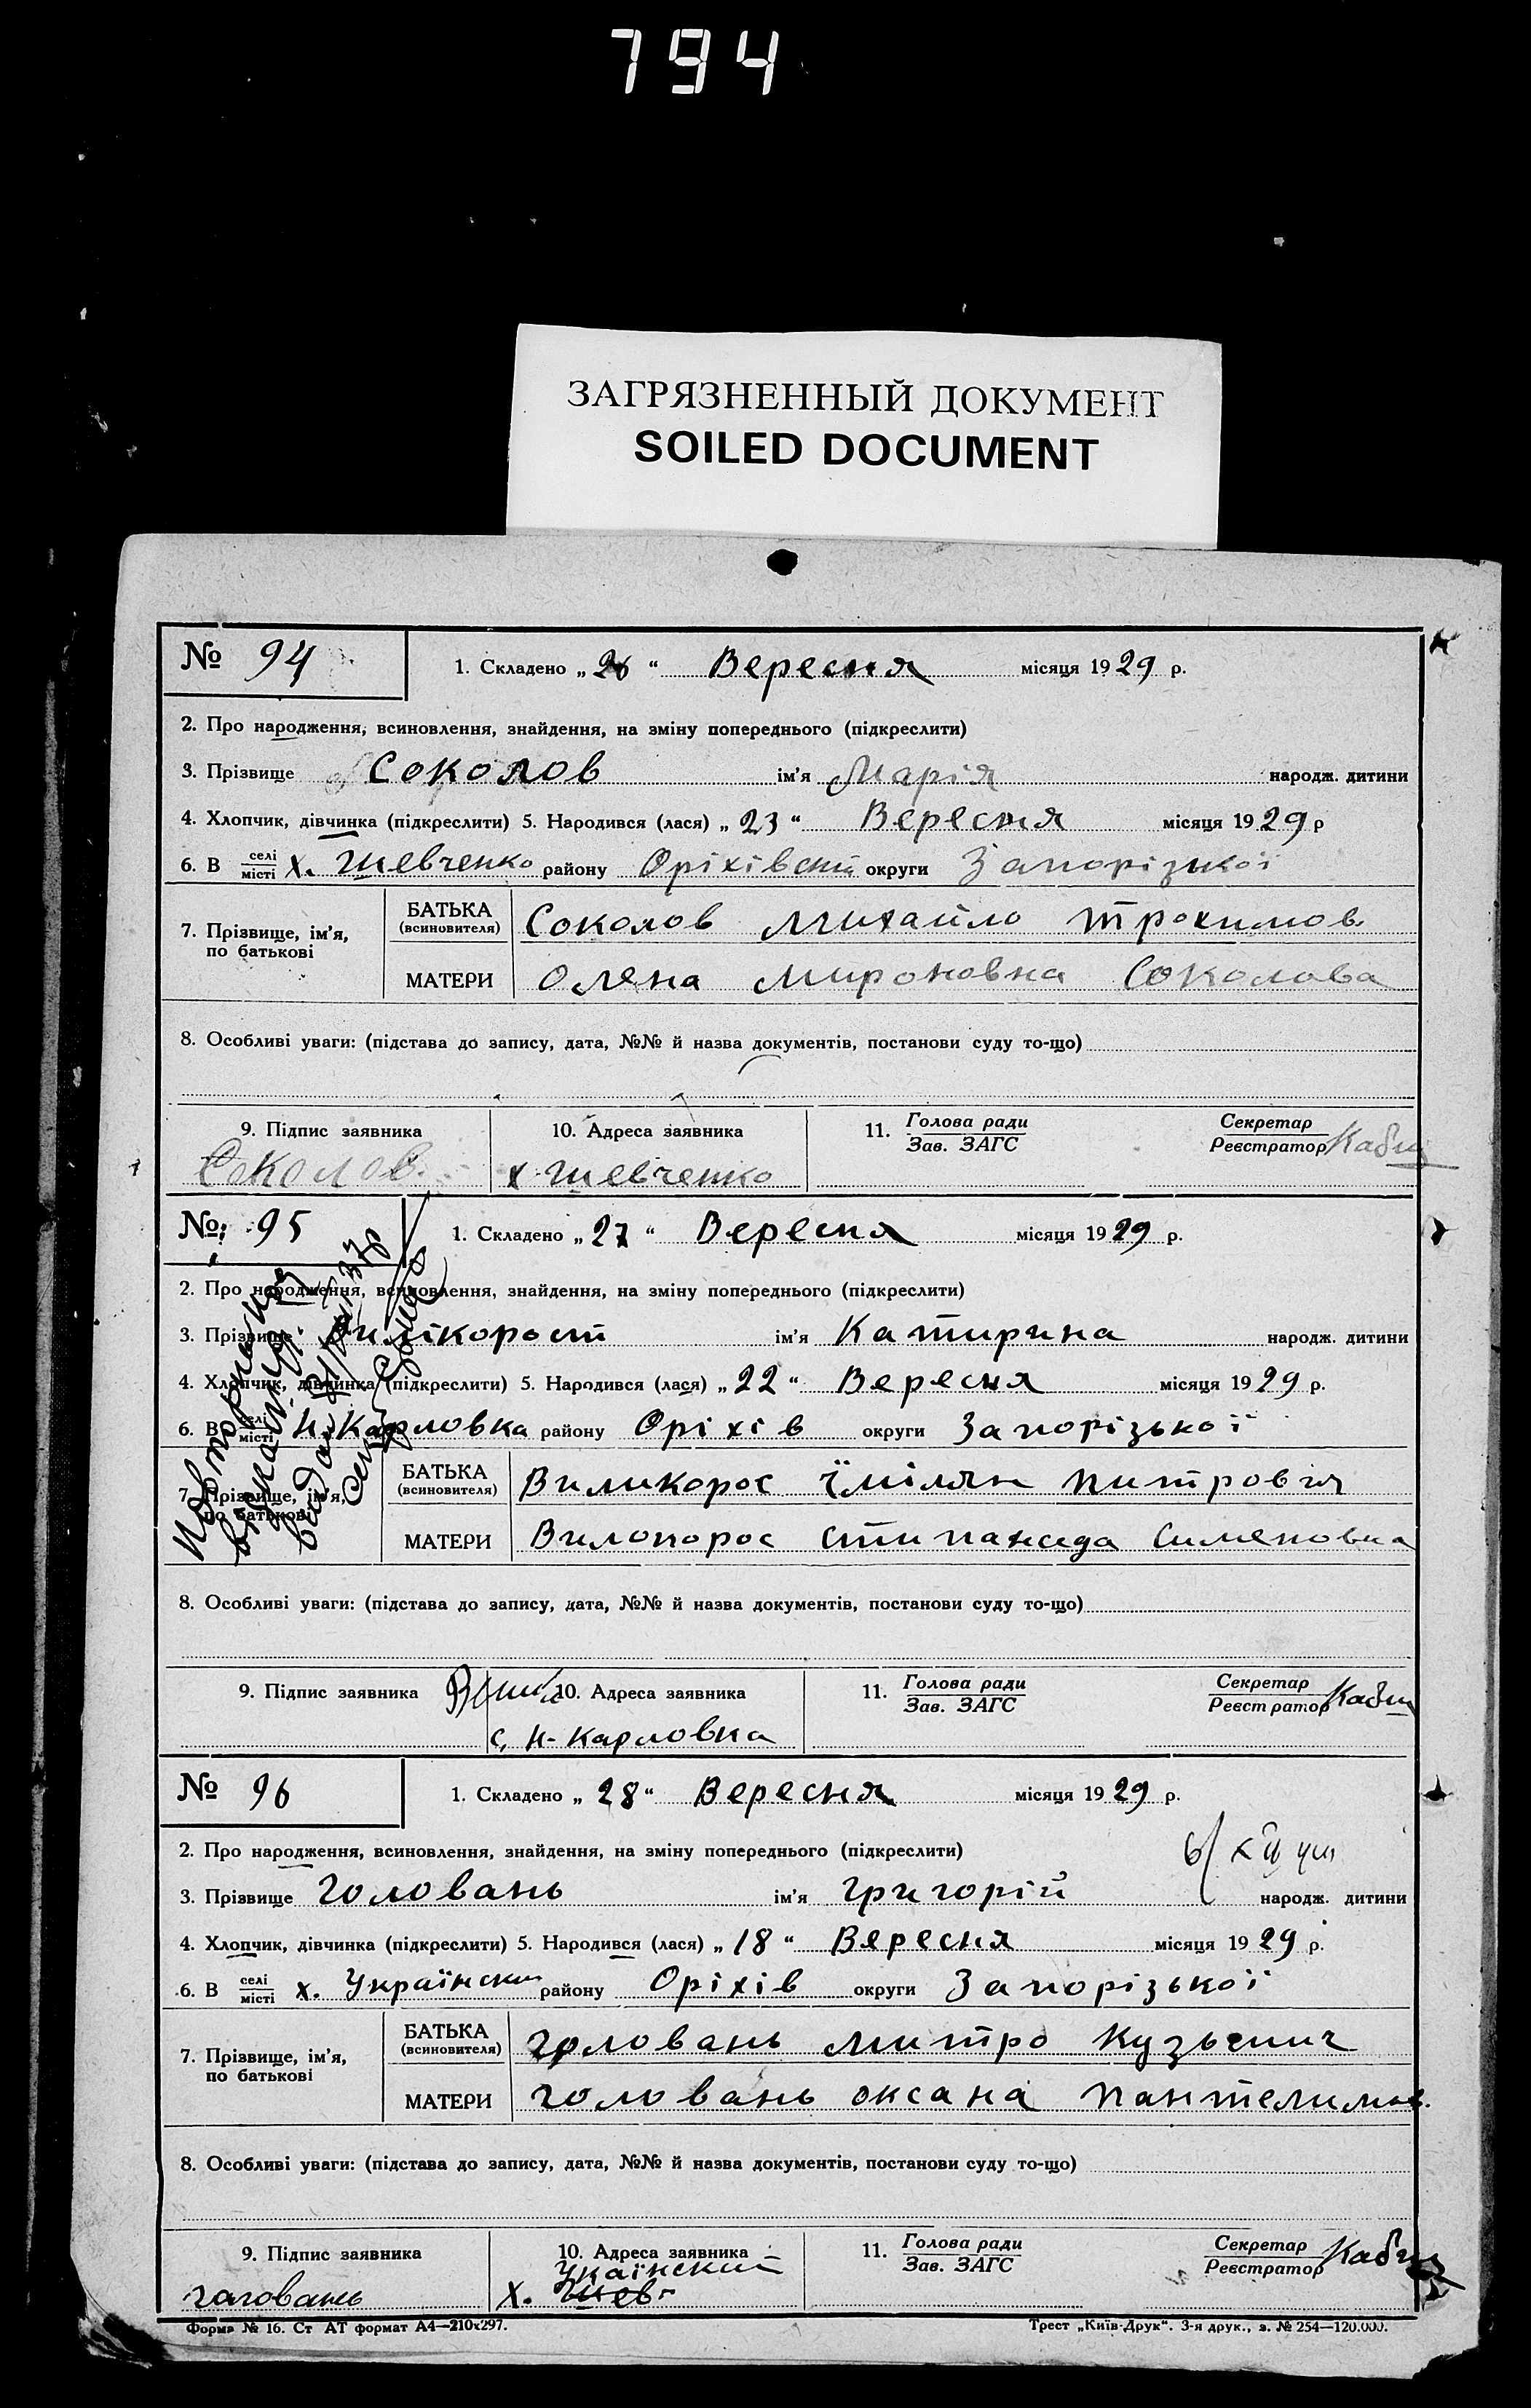 794
ЗАГРЯЗНЕННЫЙ ДОКУМЕНТ
SOILED DOCUMENT
№ 94
1. Складено „ 26 “ Вересня місяця 1929 р.
2. Про народження, всиновлення, знайдення, на зміну попереднього (підкреслити)
3. Прізвище Соколов ім’я Марія народж. дитини
4. Хлопчик, дівчинка (підкреслити) 5. Народився (лася) „ 23 “ Вересня місяця 1929 р
6. В селі місті х. Шевченко району Оріхівськ округи Запорізької
7. Прізвище, ім’я, по батькові
БАТЬКА (всиновителя) Соколов Михайло Трохимов.
МАТЕРИ Олена Мироновна Соколова
8. Особливі уваги: (підстава до запису, дата, №№ й назва документів, постанови суду то-що)
9. Підпис заявника 10. Адреса заявника 11. Голова ради Зав. ЗАГС Секретар Реєстратор
Соколов. х Шевченко
№ 95
1. Складено „ 27 “ Вересня місяця 1929 р.
2. Про народження, всиновлення, знайдення, на зміну попереднього (підкреслити)
3. Прізвище Вилікорост ім’я Катирина народж. дитини
4. Хлопчик, дівчинка (підкреслити) 5. Народився (лася) „ 22 “ Вересня місяця 1929 р.
6. В селі місті Н-Карловка району Оріхів округи Запорізької
7. Прізвище, ім’я, по батькові
БАТЬКА (всиновителя) Виликорос Їмілян Питровия
МАТЕРИ Вилокорос Сименовна
8. Особливі уваги: (підстава до запису, дата, №№ й назва документів, постанови суду то-що)
9. Підпис заявника 10. Адреса заявника 11. Голова ради Зав. ЗАГС Секретар Реєстратор
с. Н-Карловка
№ 96
1. Складено „ 28 “ Вересня місяця 1929 р.
2. Про народження, всиновлення, знайдення, на зміну попереднього (підкреслити)
3. Прізвище Головань ім’я Григорій народж. дитини
4. Хлопчик, дівчинка (підкреслити) 5. Народився (лася) „ 18 “ Вересня місяця 1929 р.
6. В селі місті х. Українский району Оріхів округи Запорізької
7. Прізвище, ім’я, по батькові
БАТЬКА (всиновителя) Головань Митро Кузьмич
МАТЕРИ Головань Оксана Пантелимов.
8. Особливі уваги: (підстава до запису, дата, №№ й назва документів, постанови суду то-що)
9. Підпис заявника 10. Адреса заявника 11. Голова ради Зав. ЗАГС Секретар Реєстратор
Укаїнский
Головань х. Шевг
Форма № 16. Ст АТ формат А4—210х297. Трест „Київ-Друк“. 3-я друк., з. № 254—120.000.